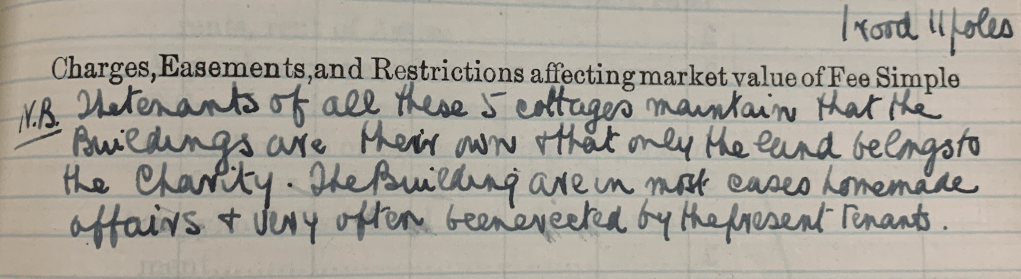 1 rood 11 poles
Charges, Easements, and Restrictions affecting market value of Fee Simple
N.B. The tenants of all these 5 cottages maintain that the
Buildings are their own & that only the land belongs to
the Charity. The Building are in most cases homemade
affairs & very often been erected by the present Tenants.